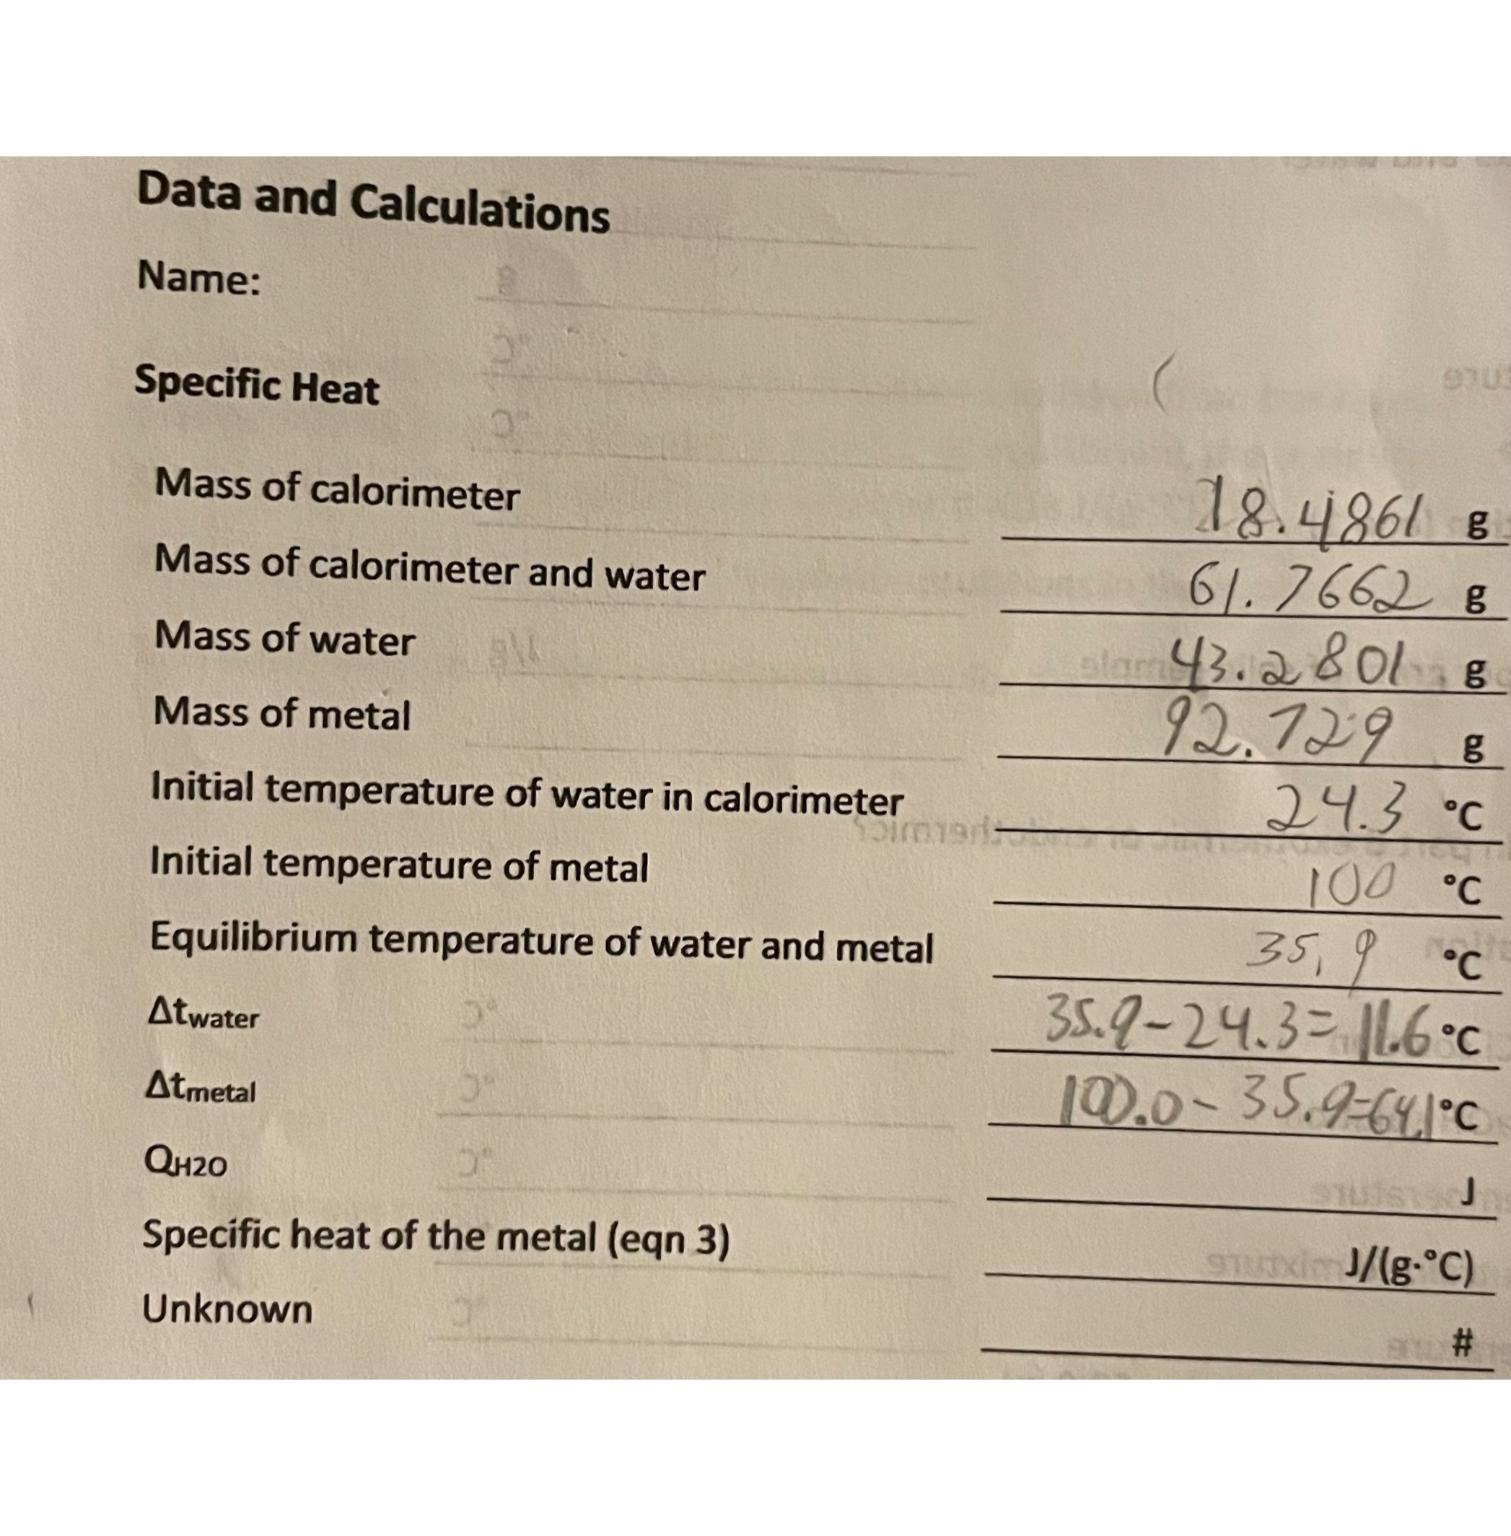 Data and Calculations
Name:
Specific Heat
Mass of calorimeter 18.4861 g
Mass of calorimeter and water 61.7662 g
Mass of water 43.2801 g
Mass of metal 92.729 g
Initial temperature of water in calorimeter 24.3 °C
Initial temperature of metal 100 °C
Equilibrium temperature of water and metal 35.9 °C
Δtwater 35.9-24.3=11.6 °C
Δtmetal 100.0-35.9=64.1 °C
QH2O J
Specific heat of the metal (eqn 3) J/(g·°C)
Unknown #